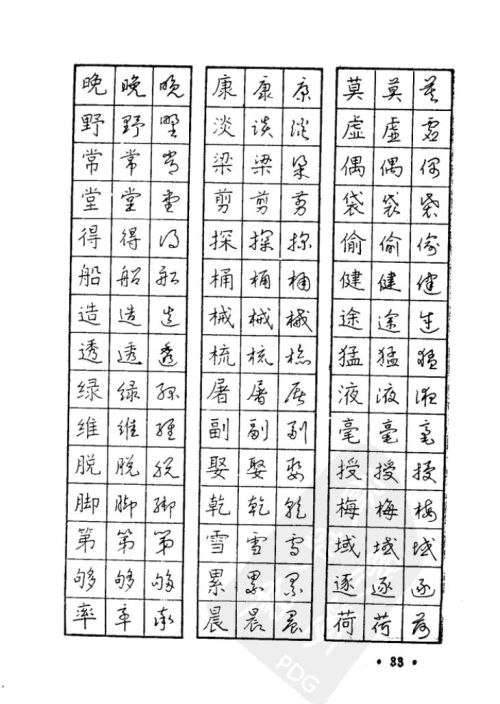 晚 晚 晚 康 康 康 莫 莫 莫
野 野 野 淡 淡 淡 虚 虚 虚
常 常 常 梁 梁 梁 偶 偶 偶
堂 堂 堂 剪 剪 剪 袋 袋 袋
得 得 得 探 探 探 偷 偷 偷
船 船 船 桶 桶 桶 健 健 健
造 造 造 械 械 械 途 途 途
透 透 透 梳 梳 梳 猛 猛 猛
绿 绿 绿 屠 屠 屠 液 液 液
维 维 维 副 副 副 毫 毫 毫
脱 脱 脱 娶 娶 娶 授 授 授
脚 脚 脚 乾 乾 乾 梅 梅 梅
第 第 第 雪 雪 雪 域 域 域
够 够 够 累 累 累 逐 逐 逐
率 率 率 晨 晨 晨 荷 荷 荷
• 33 •
PDG